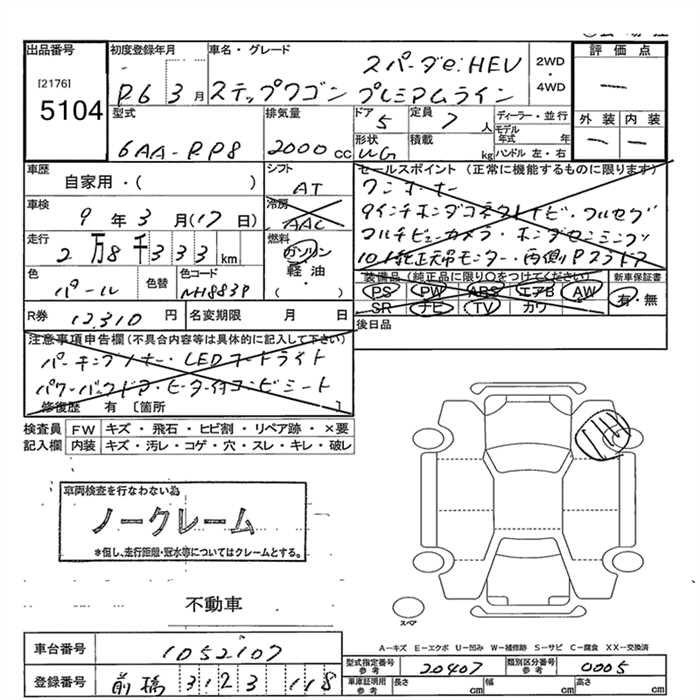 出品番号
[2176]
5104
初度登録年月
R6 3月
車名・グレード
スパーダe:HEV
ステップワゴン プレミアムライン
2WD
・
4WD
評価点
—
外装 内装
— —
型式
6AA-RP8
排気量
2000 cc
ドア
5
定員
7 人
形状
WG
積載
kg
ディーラー・並行
モデル年式 年
ハンドル 左・右
車歴
自家用・( )
シフト
AT
車検
9年3月(17日)
冷房
AAC
走行
2万8千333km
燃料
ガソリン
軽油
・
( )
色
パール
色替
色コード
NH883P
R券
12,310円
名変期限 月 日
セールスポイント(正常に機能するものに限ります)
ワンオーナー
9インチホンダコネクトナビ・フルセグ
マルチビューカメラ・ホンダセンシング
10.1純正天吊モニター・両側Pスライドア
装備品(純正品に限り○をつけてください)
PS PW ABS エアB AW
SR ナビ TV カワ
新車保証書
有・無
後日品
注意事項申告欄(不具合内容等は具体的に記入して下さい)
パーキングソナー・LEDヘッドライト
パワーバックドア・ヒーター付コンビシート
修復歴 有 [箇所 ]
検査員記入欄
FW キズ・飛石・ヒビ割・リペア跡・×要
内装 キズ・汚レ・コゲ・穴・スレ・キレ・破レ
車両検査を行なわない為
ノークレーム
*但し、走行距離・冠水等についてはクレームとする。
不動車
スペア
A－キズ E－エクボ U－凹み W－補修跡 S－サビ C－腐食 XX－交換済
車台番号
1052107
登録番号
前橋 312 3 118
型式指定番号
参考
20407
類別区分番号
参考
0005
車庫証明用
参考
長さ cm
幅 cm
高さ cm